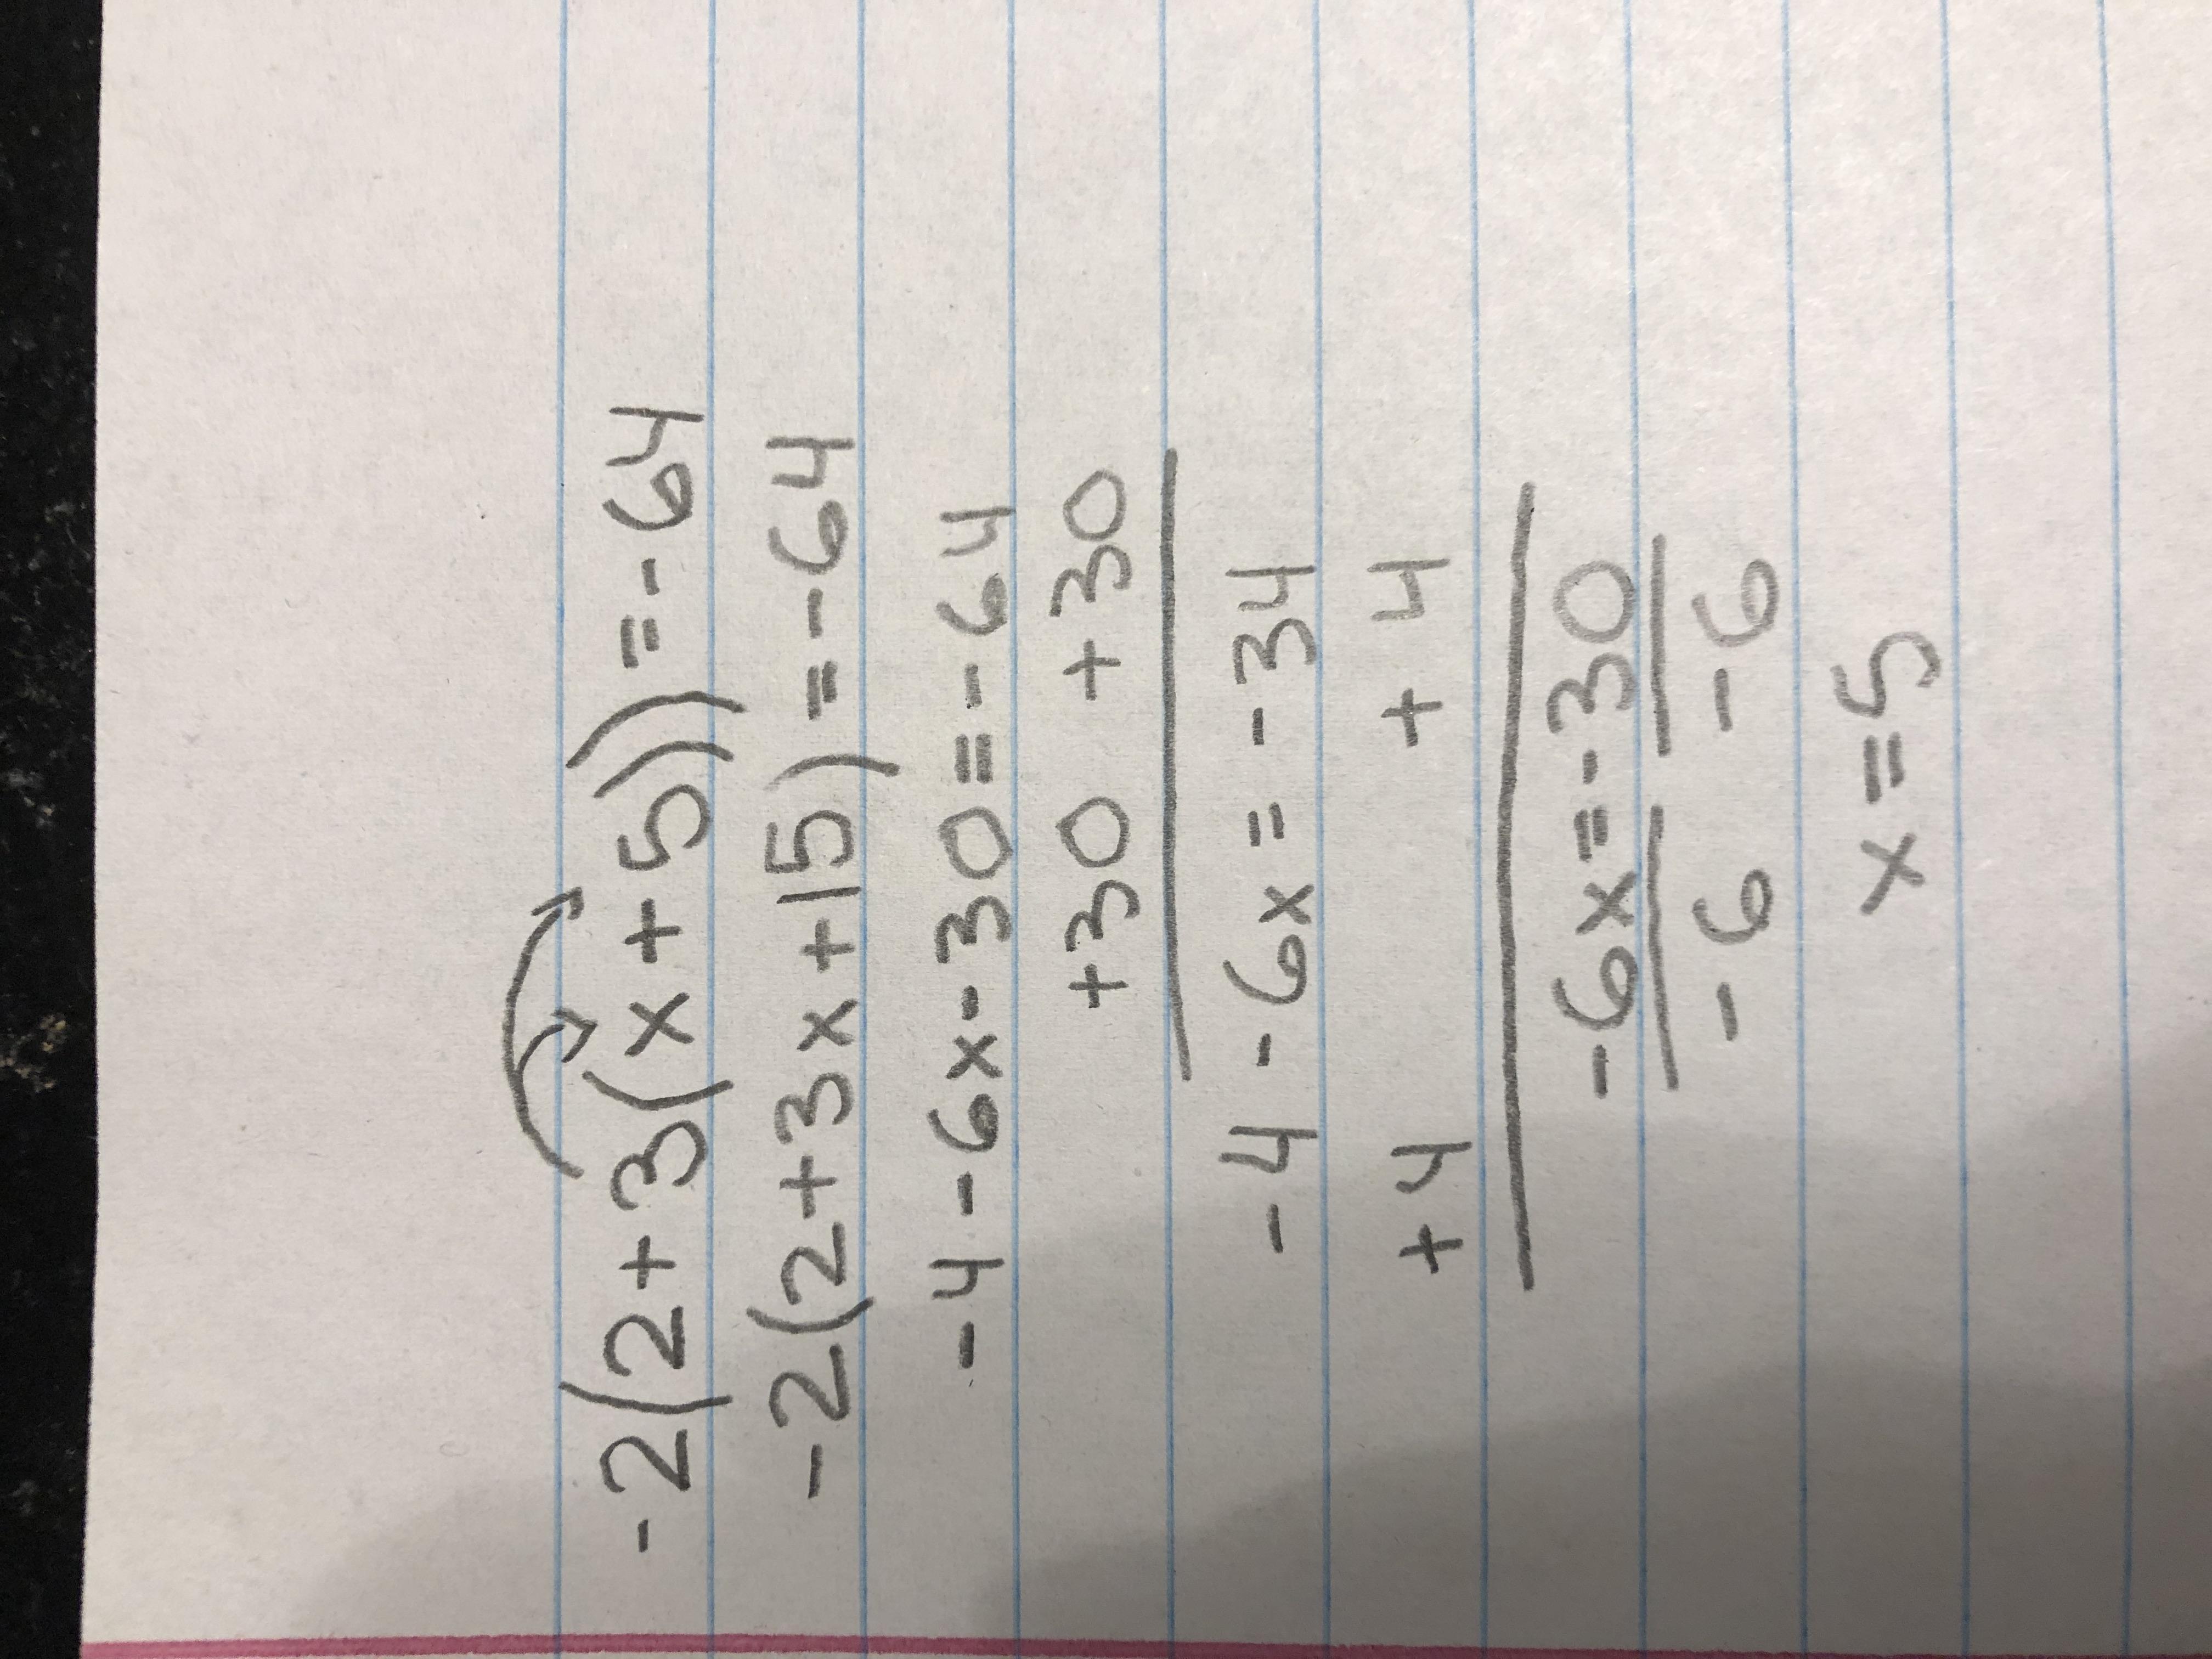 -2(2+3(x+5))=-64
-2(2+3x+15)=-64
-4-6x-30=-64
+30 +30
-4-6x=-34
+4 +4
-6x=-30
-6 -6
x=5